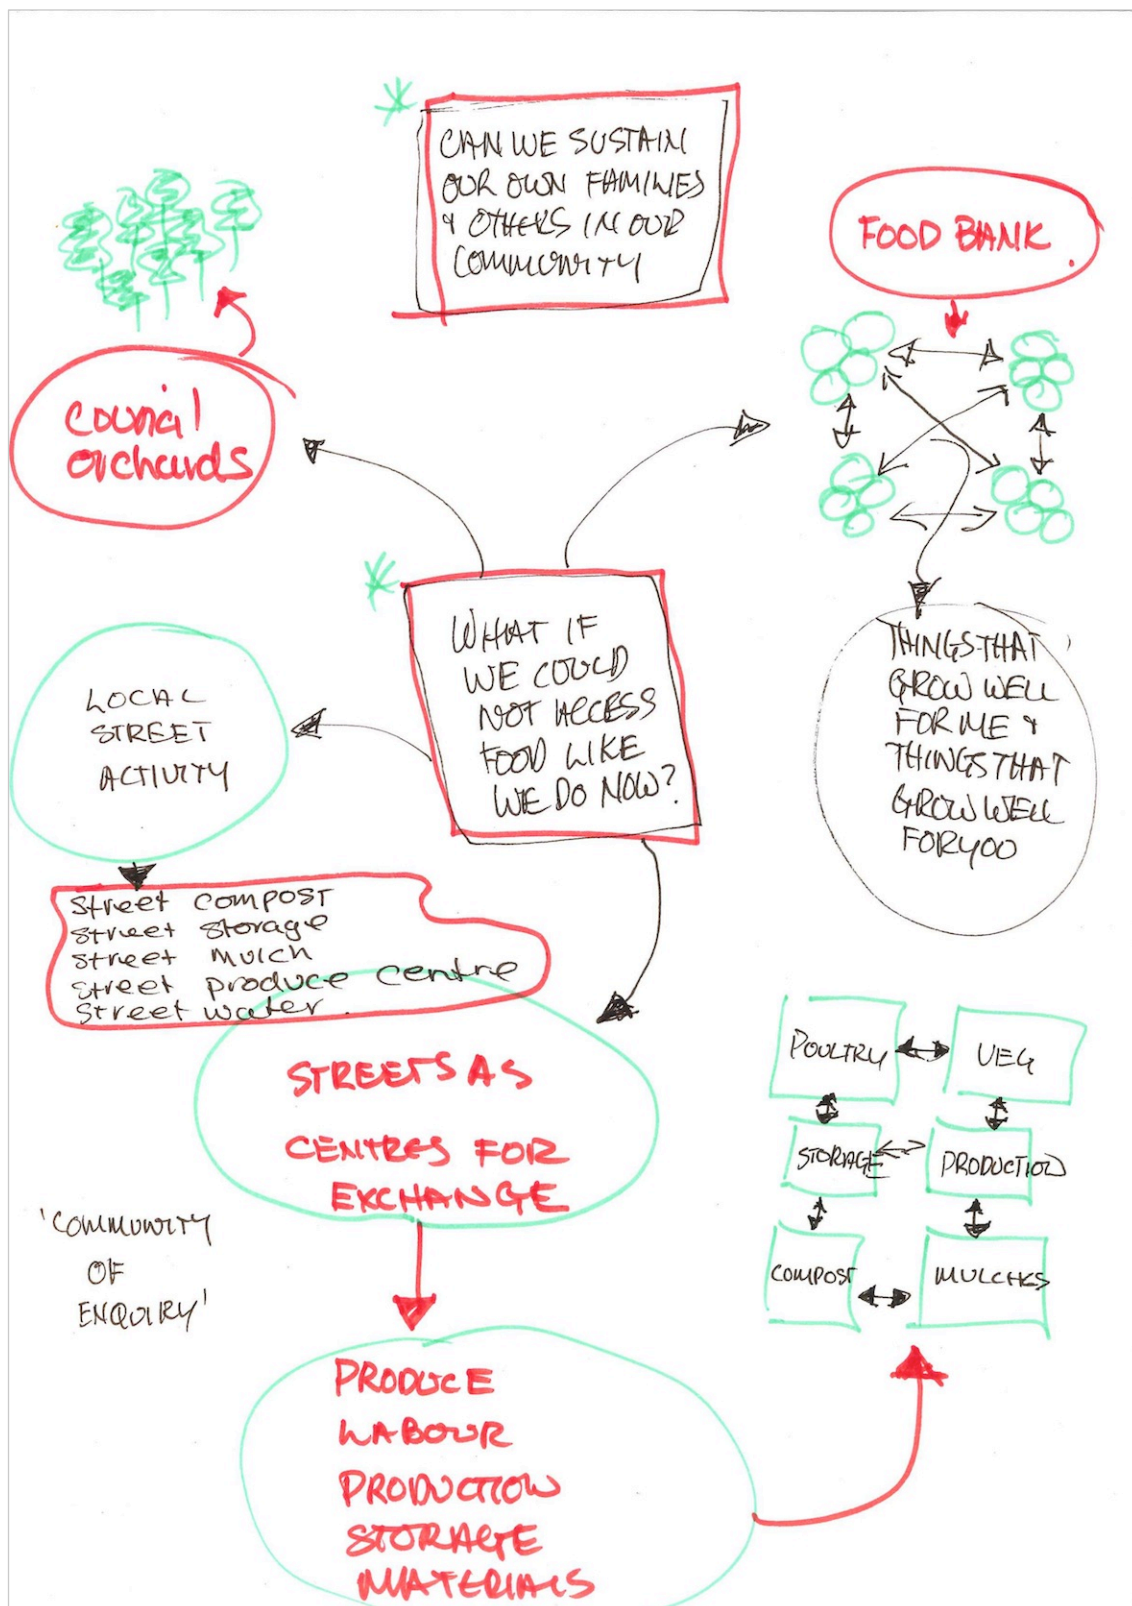 CAN WE SUSTAIN
OUR OWN FAMILIES
& OTHERS IN OUR
COMMUNITY
FOOD BANK.
Council
orchards
WHAT IF
WE COULD
NOT ACCESS
FOOD LIKE
WE DO NOW?
THINGS THAT
GROW WELL
FOR ME &
THINGS THAT
GROW WELL
FOR YOO
LOCAL
STREET
ACTIVITY
Street compost
street storage
street mulch
street produce centre
street water.
STREETS AS
CENTRES FOR
EXCHANGE
'COMMUNITY
OF
ENQUIRY'
POULTRY
VEG
STORAGE
PRODUCTION
COMPOST
MULCHES
PRODUCE
LABOUR
PRODUCTION
STORAGE
MATERIALS